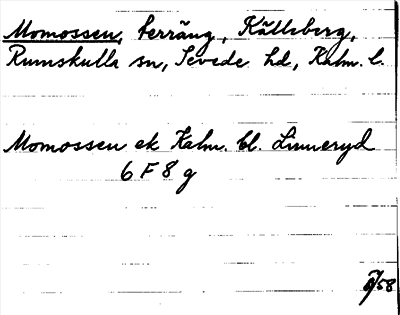 Momossen, terräng, Källeberg,
Rumskulla sn, Sevede hd, Kalm. l.
Momossen ek Kalm. bl. Linneryd
6 F 8 g
/58